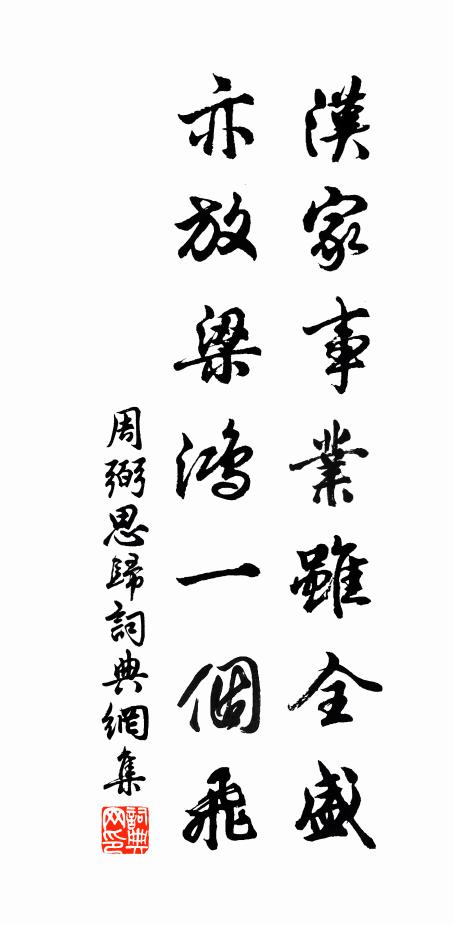 漢家事業雖全盛
亦放梁鴻一個飛
周弼思歸詞典網集
詞典网印